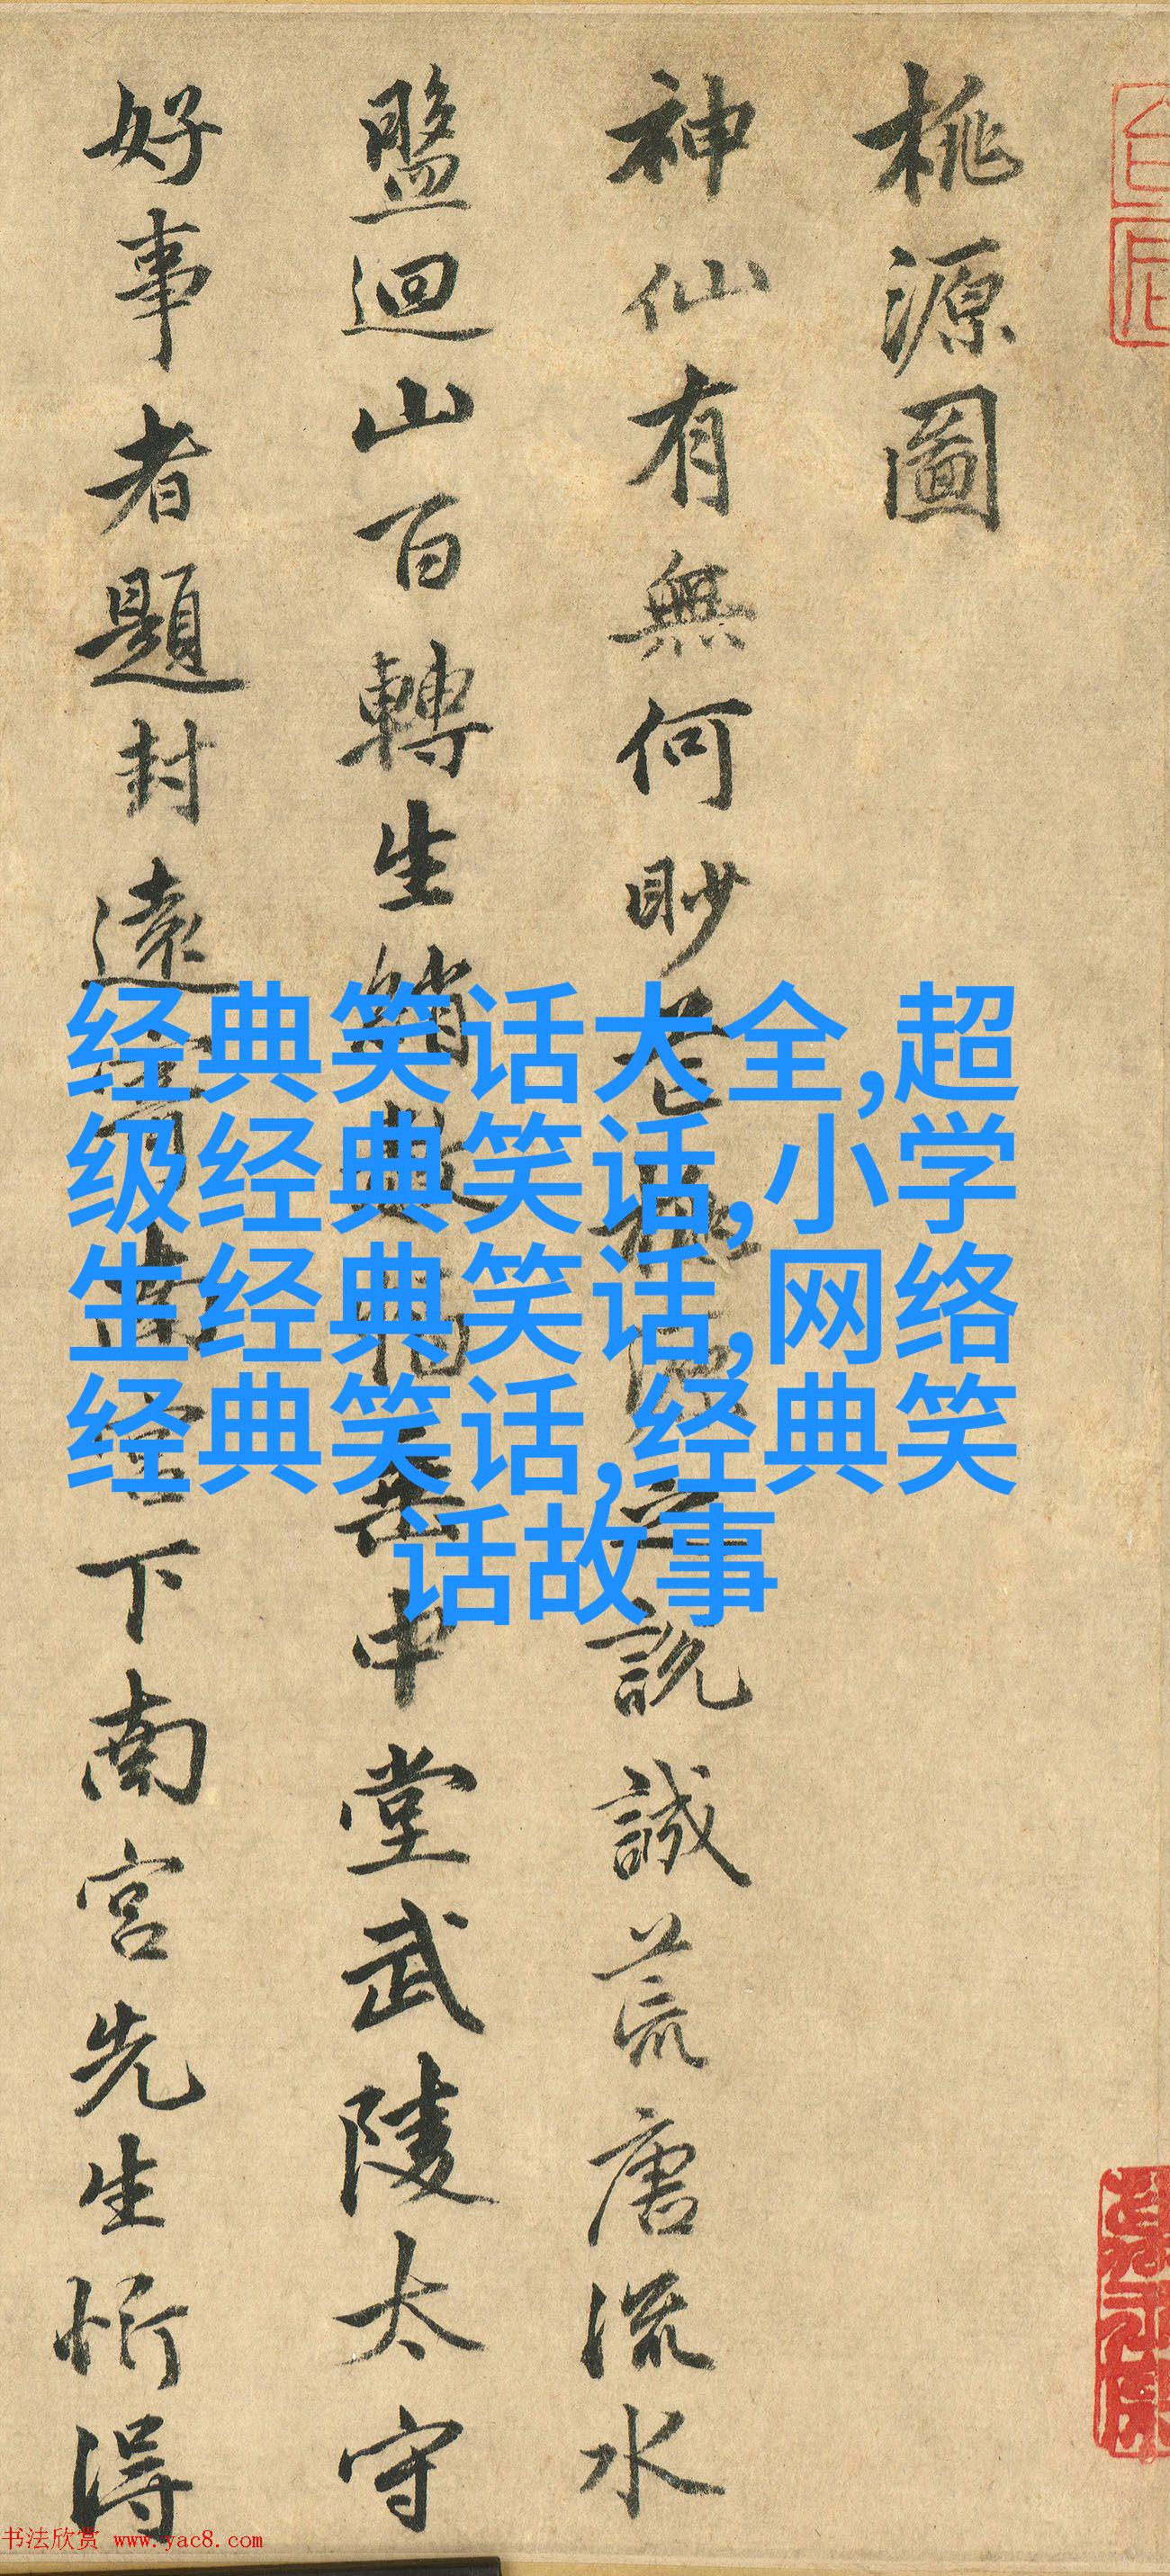 桃源圖
神仙有無何眇芒桃源之說誠荒唐流水
盤迴山百轉生綃數幅垂中堂武陵太守
好事者題封遠寄南宮下南宮先生忻得
经典笑话大全,超
级经典笑话,小学
生经典笑话,网络
经典笑话,经典笑
话故事
书法欣赏 www.yac8.com